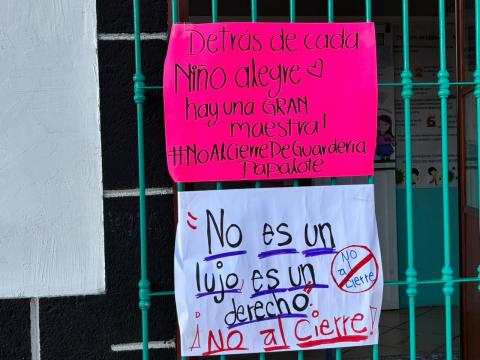 Detrás de cada
Niño alegre ♡
hay una GRAN
maestra!
#NoAlCierreDeGuardería
Papalote
"No es un
lujo, es un
derecho"
¡NO al cierre!
NO
al
cierre